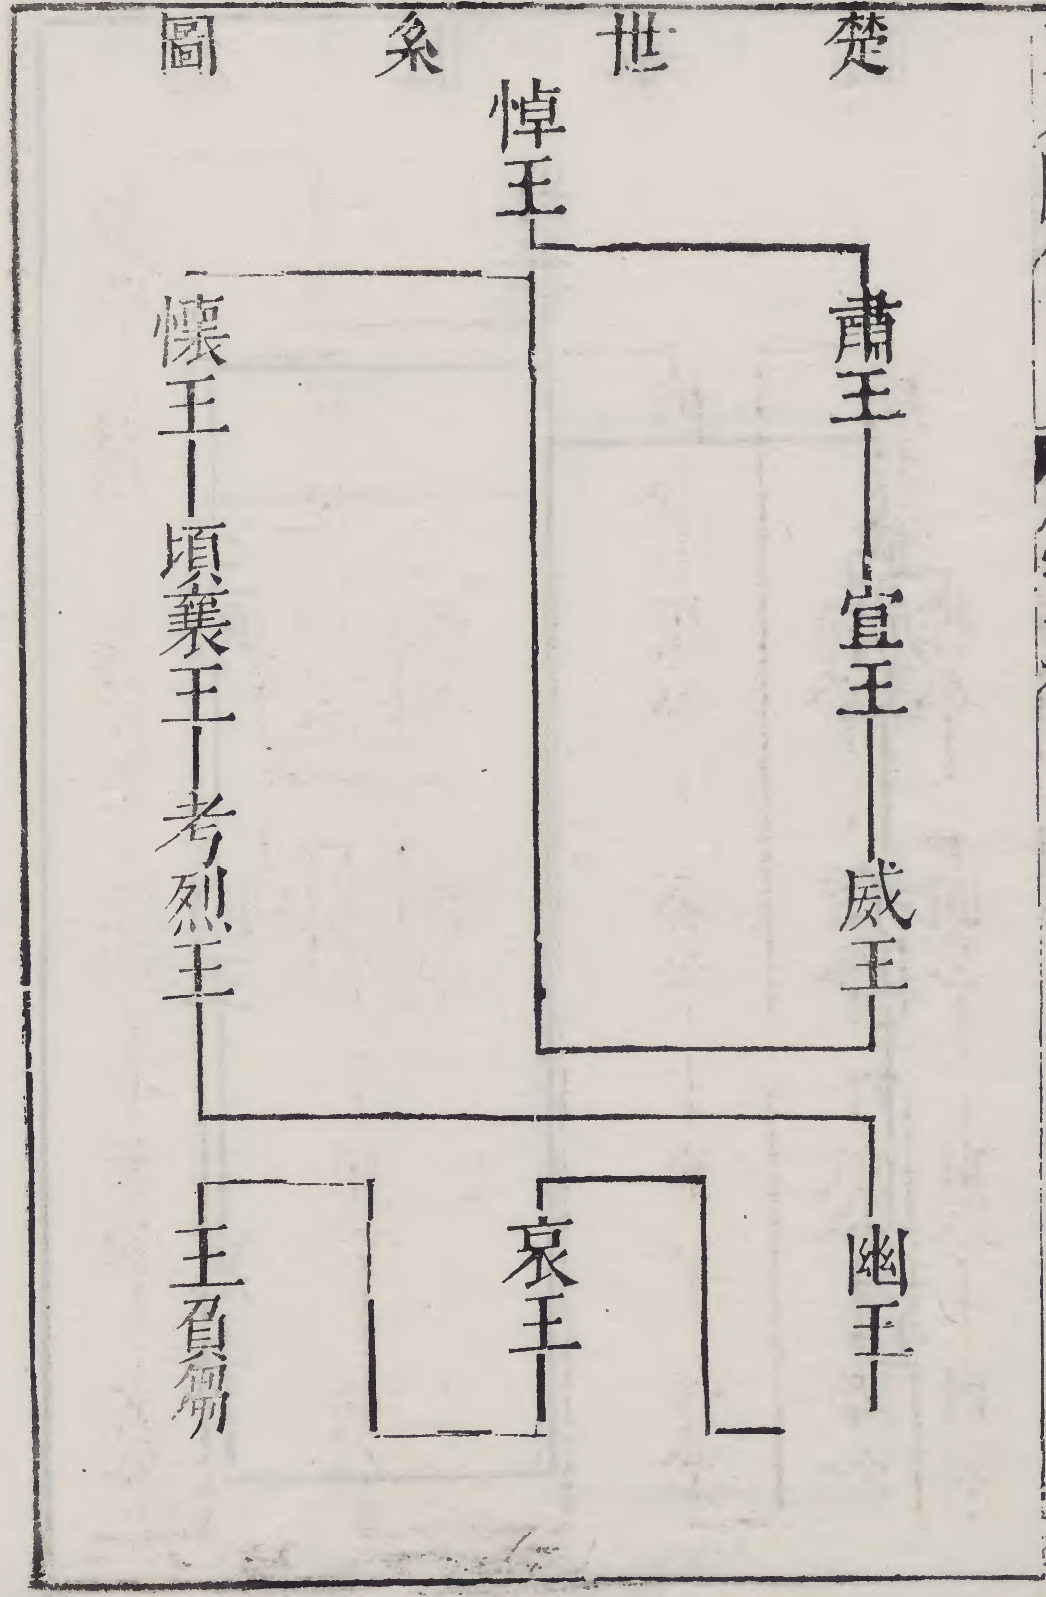 楚世系圖
悼王
肅王
宣王
威王
懷王
頃襄王
考烈王
幽王
哀王
王負芻